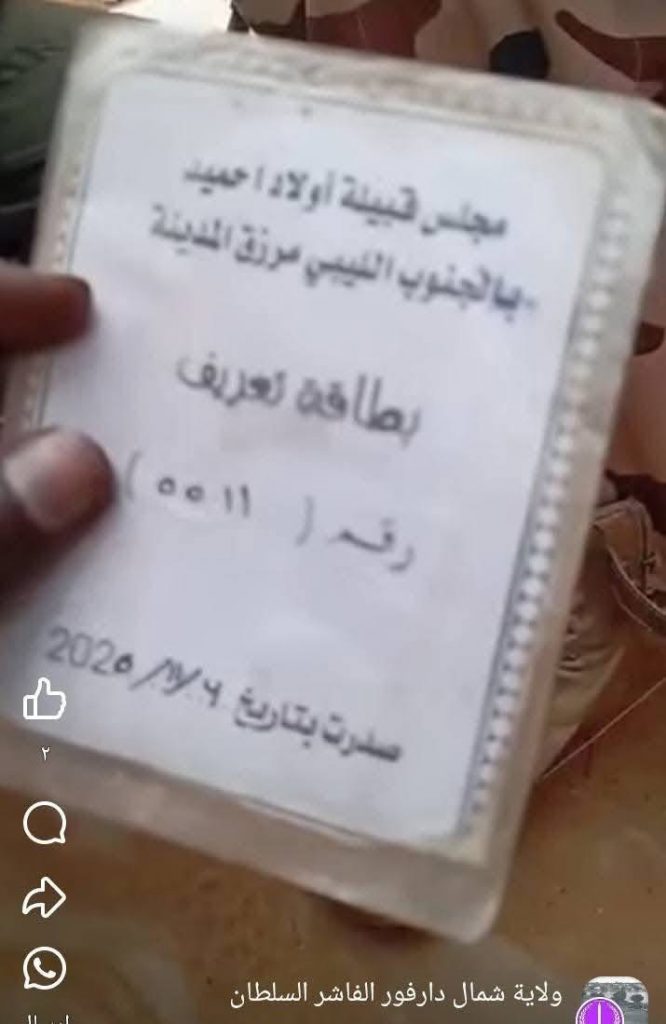 مجلس قبيلة أولاد احميد
بالجنوب الليبي مرزق المدينة
بطاقة تعريف
رقم ( ٥٥١١ )
صدرت بتاريخ
٢
ولاية شمال دارفور الفاشر السلطان